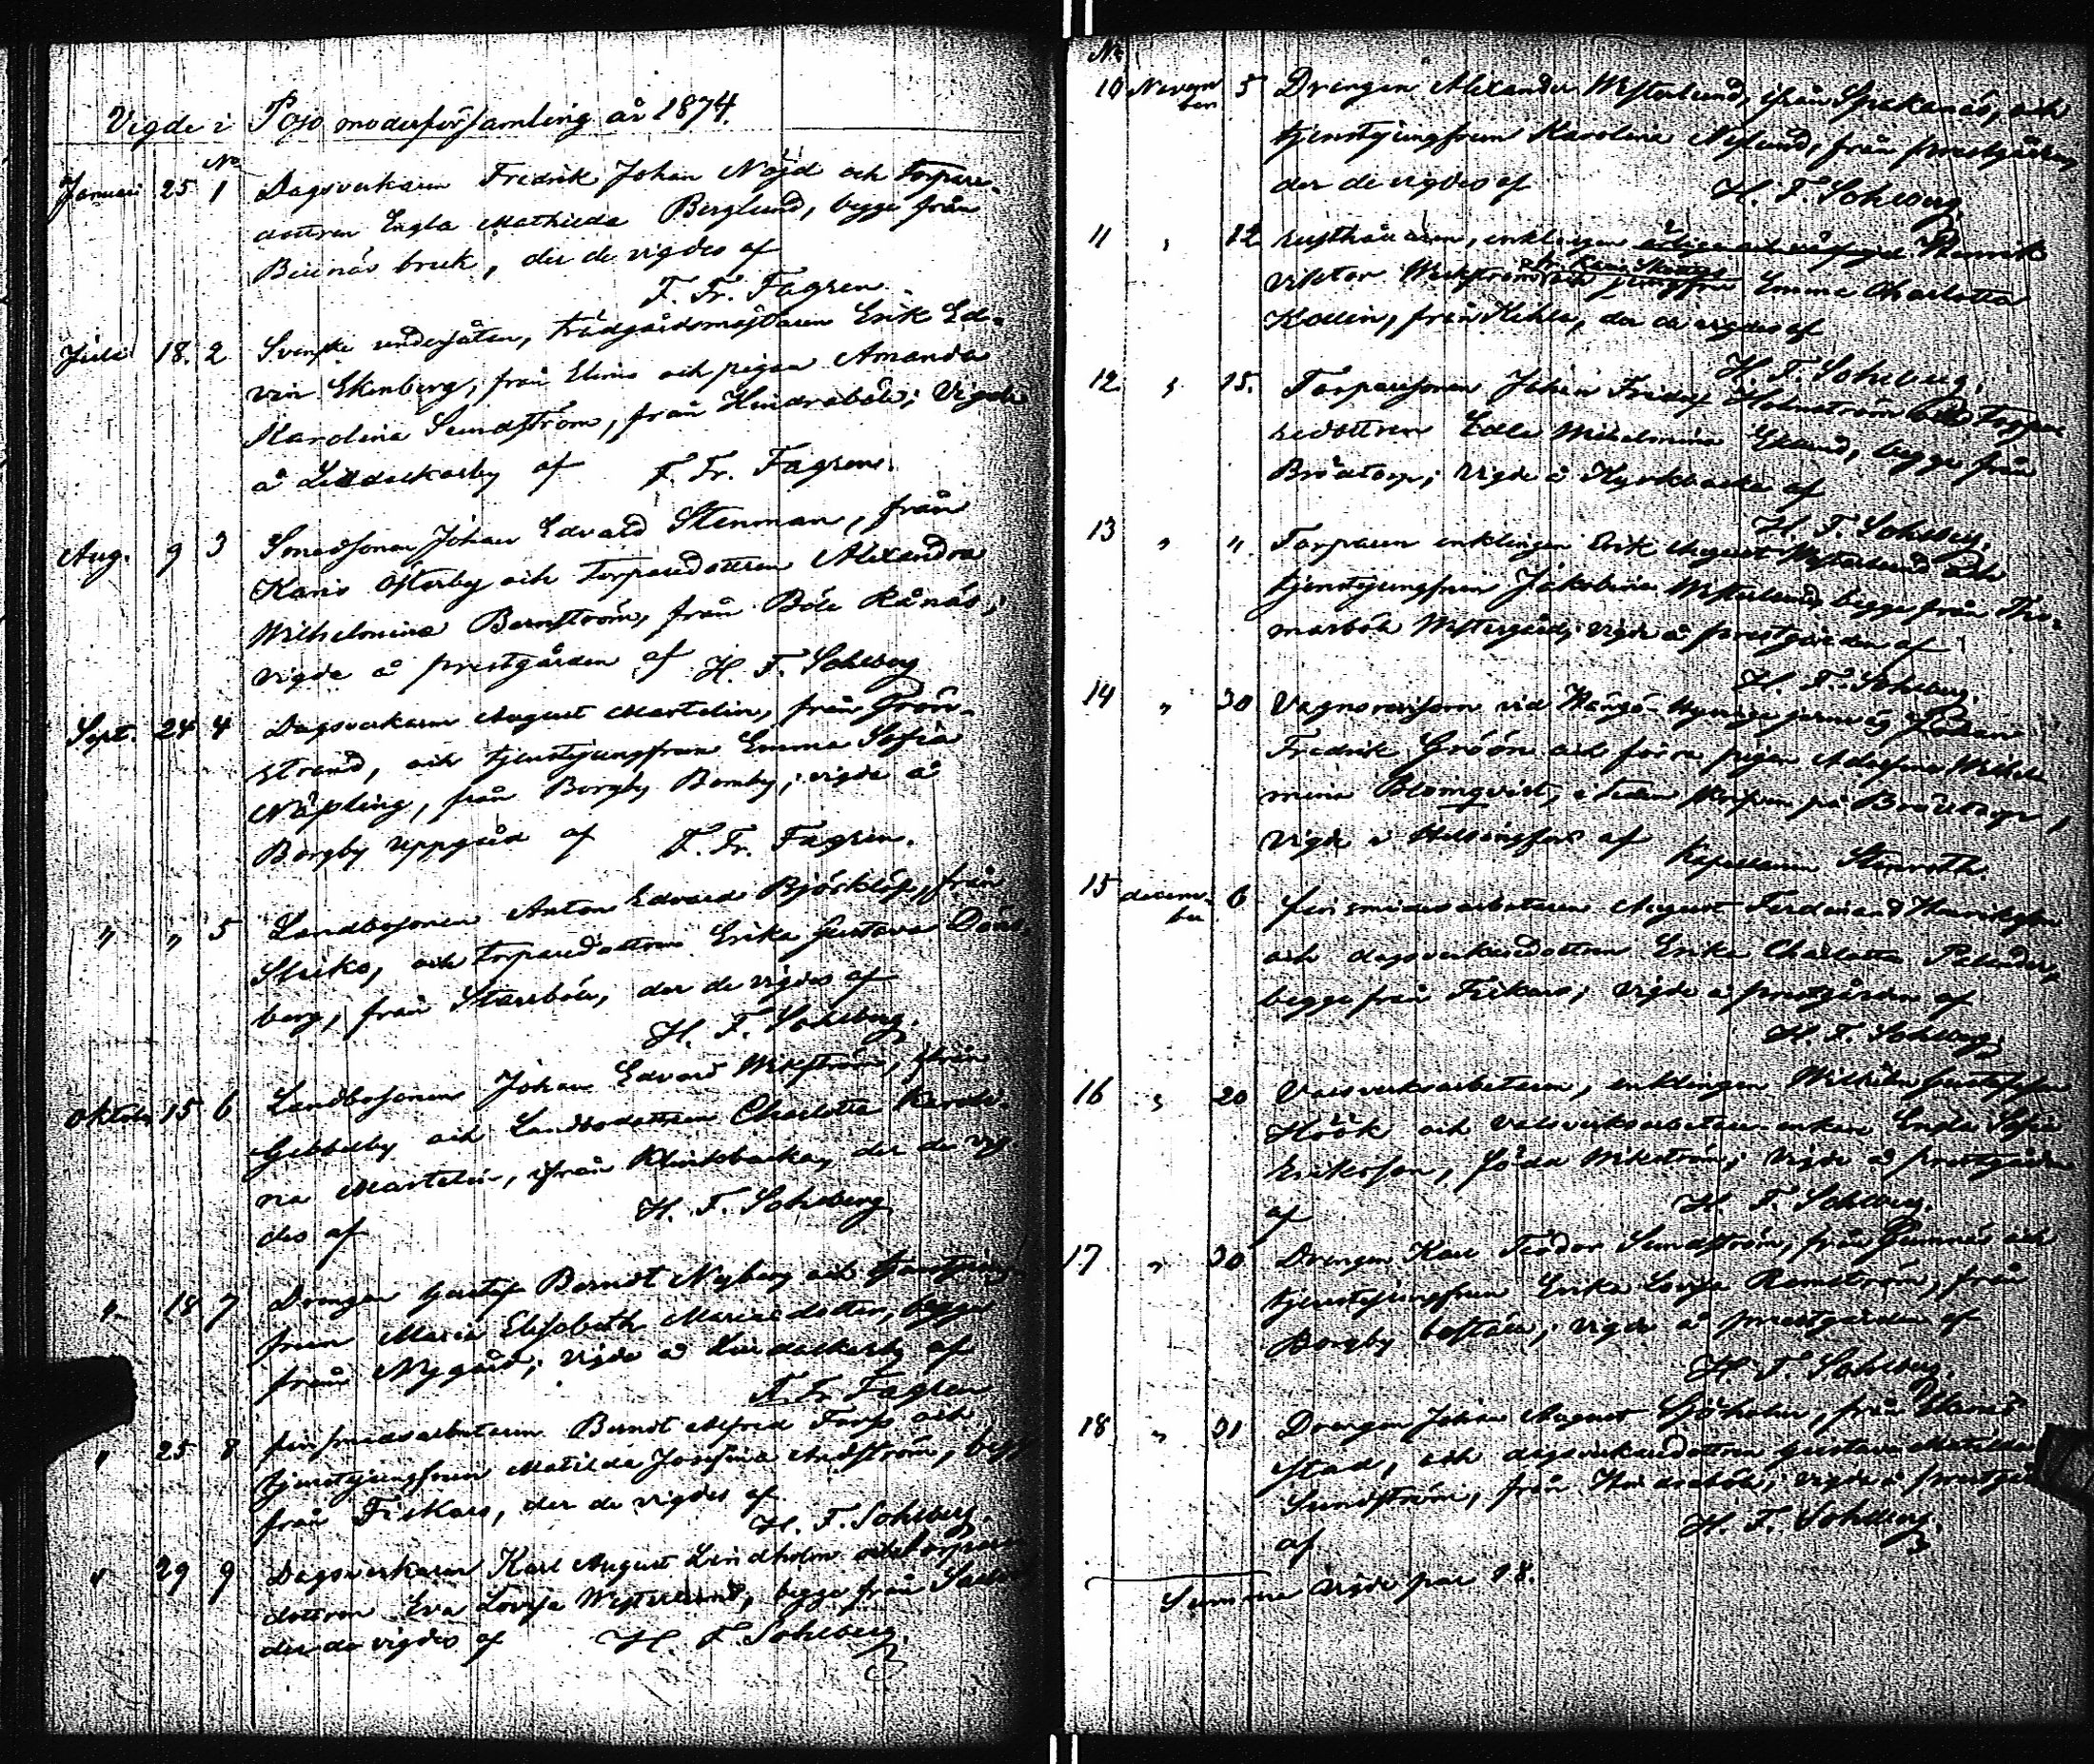 Vigde i Pojo moderförsamling år 1874.
No
Januari 25 1 Dagsverkaren Fredrik Johan Nöjd och torpare-
dottren Engla Mathilda Berglund, begge från
Billnäs bruk, der de vigdes af
F. Fr. Fagren.
Juli 18. 2 Svenske undersåten, trädgårdsmästaren Erik Ed-
vin Ekenberg, från Elimo och pigan Amanda
Karolina Sundström, från Hindrabøle; Vigde
å Lilldalkarby af F. Fr. Fagren.
Aug. 9 3 Smedsonen Johan Edvard Stenman, från
Karis Österby och torparedottren Alexandra
Wilhelmina Bernström, från Böle Rånäs;
vigde å prestgården af H. F. Sohlberg
Sept. 24 4 Dagsverkaren August Martelin, från Grön-
strand, och tjenstjungfrun Emma Sofia
Näpling, från Borgby Bonnby; vigde å
Borgby uppgård af F. Fr. Fagren.
" " 5 Landbosonen Anton Edvard Björklöf, från
Skriko, och torparedottren Erika Gustava
berg, från Starrböle, der de vigdes af
H. F. Sohlberg.
Oktober 15 6 Landbosonen Johan Edvard Wikström, från
Gebbelby och Landbodottren Charlotta Karoli-
na Martelin, ifrån Klinkbacka, der de vig-
des af H. F. Sohlberg
" 18 7 Drengen Gustaf Berndt Nyberg och tjenstjung-
frun Maria Elisabeth Mariædotter, begge
från Nygård; vigde å Lindalkarby af
F. Fr. Fagren
" 25 8 finsmidsarbetaren Berndt Alfred Forss och
tjenstjungfrun Matilda Josefina Andström, begge
från Fiskars, der de vigdes af
H. F. Sohlberg.
" 29 9 Dagsverkaren Karl August Lindholm och torpare
dottren Eva Lovisa Westerlund, begge från
der de vigdes af H. F. Sohlberg.
No
10 November 5 Drengen Alexander Westerlund, från Spakanäs, och
tjenstjungfrun Karolina Nylund, från prestgården
der de vigdes af H. F. Sohlberg.
11 " 12 rusthållaren, enklingen Henrik
Viktor Weckström och jungfru Emma Charlotta
Kollin, från Kihla, der de vigdes af
H. F. Sohlberg.
12. " 15. Torparesonen Johan Fridolf Holmström och Torpa-
redottren Edla Wilhelmina Eklund, begge från
Brödtorp; vigde å Kyrkbacka af
H. F. Sohlberg.
13 " " Torparen enklingen Erik August Westerlund och
tjenstjungfrun Jakobina Westerlund begge från Tho-
masböle Westergård; vigde å prestgården af
H. F. Sohlberg.
14 " 30 Vagnsrevisorn vid Hangö-Hyvinge jernväg Johan
Fredrik Gröön och förra pigan Adolfina Wilhel-
mina Blomqvist, från Brödtorp,
vigde i Helsingfors af Kapellanen Stenroth
15 december 6 finsmidesarbetaren August Ferdinand Henriksson
och dagsverkaredottren Erika Charlotta
begge från Fiskars; vigde å prestgården af
H. F. Sohlberg.
16 " 20 Valsverksarbetaren, enklingen Wilhelm Gustafsson
Höök och valsverksarbetare-enkan Engla Sofia
Eriksson, född Wikström; vigde å prestgården
af H. F. Sohlberg.
17 " 30 Drengen Karl Teodor Sundström, från Gumnäs och
tjenstejungfrun Erika Lovisa Ramström, från
Borgby boställe; vigde å prestgården af
H. F. Sohlberg.
18 " 31 Drengen Johan August Sjöholm, från Ekenäs
Stad, och dagsverkaredottren Gustava Matilda
Sundström, från Hindrabøle; vigde å prestgården
af H. F. Sohlberg.
Summa vigde par 18.